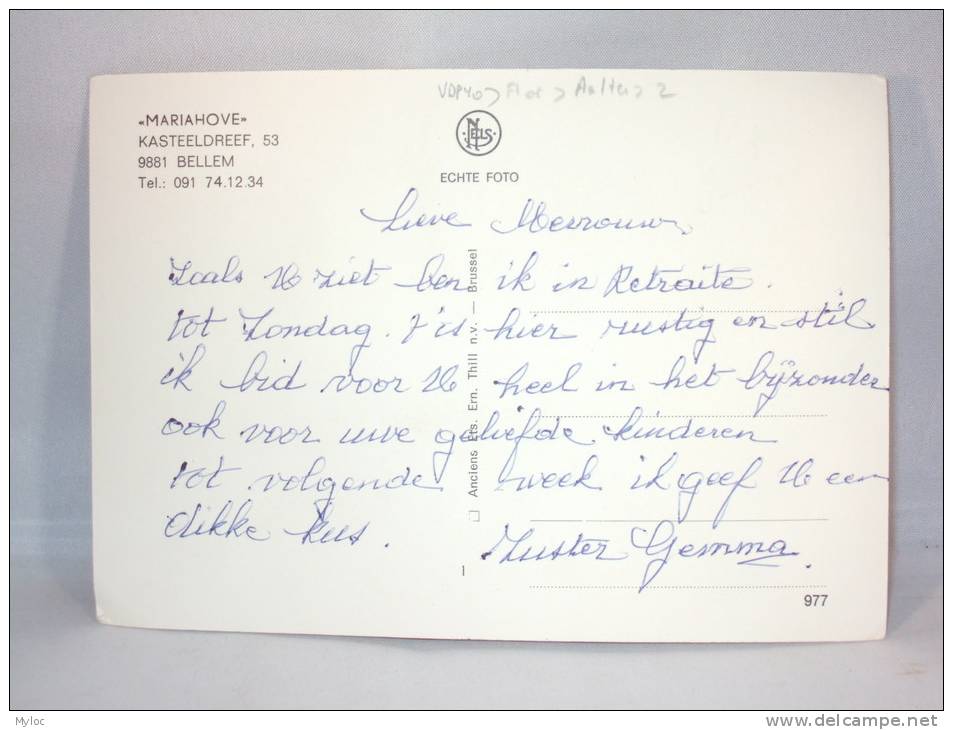 VDP40 > Fl > Aalter > 2
«MARIAHOVE»
KASTEELDREEF, 53
9881 BELLEM
Tel.: 091 74.12.34
NELS
ECHTE FOTO
Lieve Mevrouw
Zoals U ziet ben ik in Retraite.
tot Zondag. t'is hier rustig en stil
ik bid voor U heel in het bijzonder
ook voor uwe geliefde kinderen
tot volgende week ik geef U een
dikke kus.
Zuster Gemma.
Anciens Ets. Ern. Thill n.v. — Brussel
1
977
Myloc
www.delcampe.net